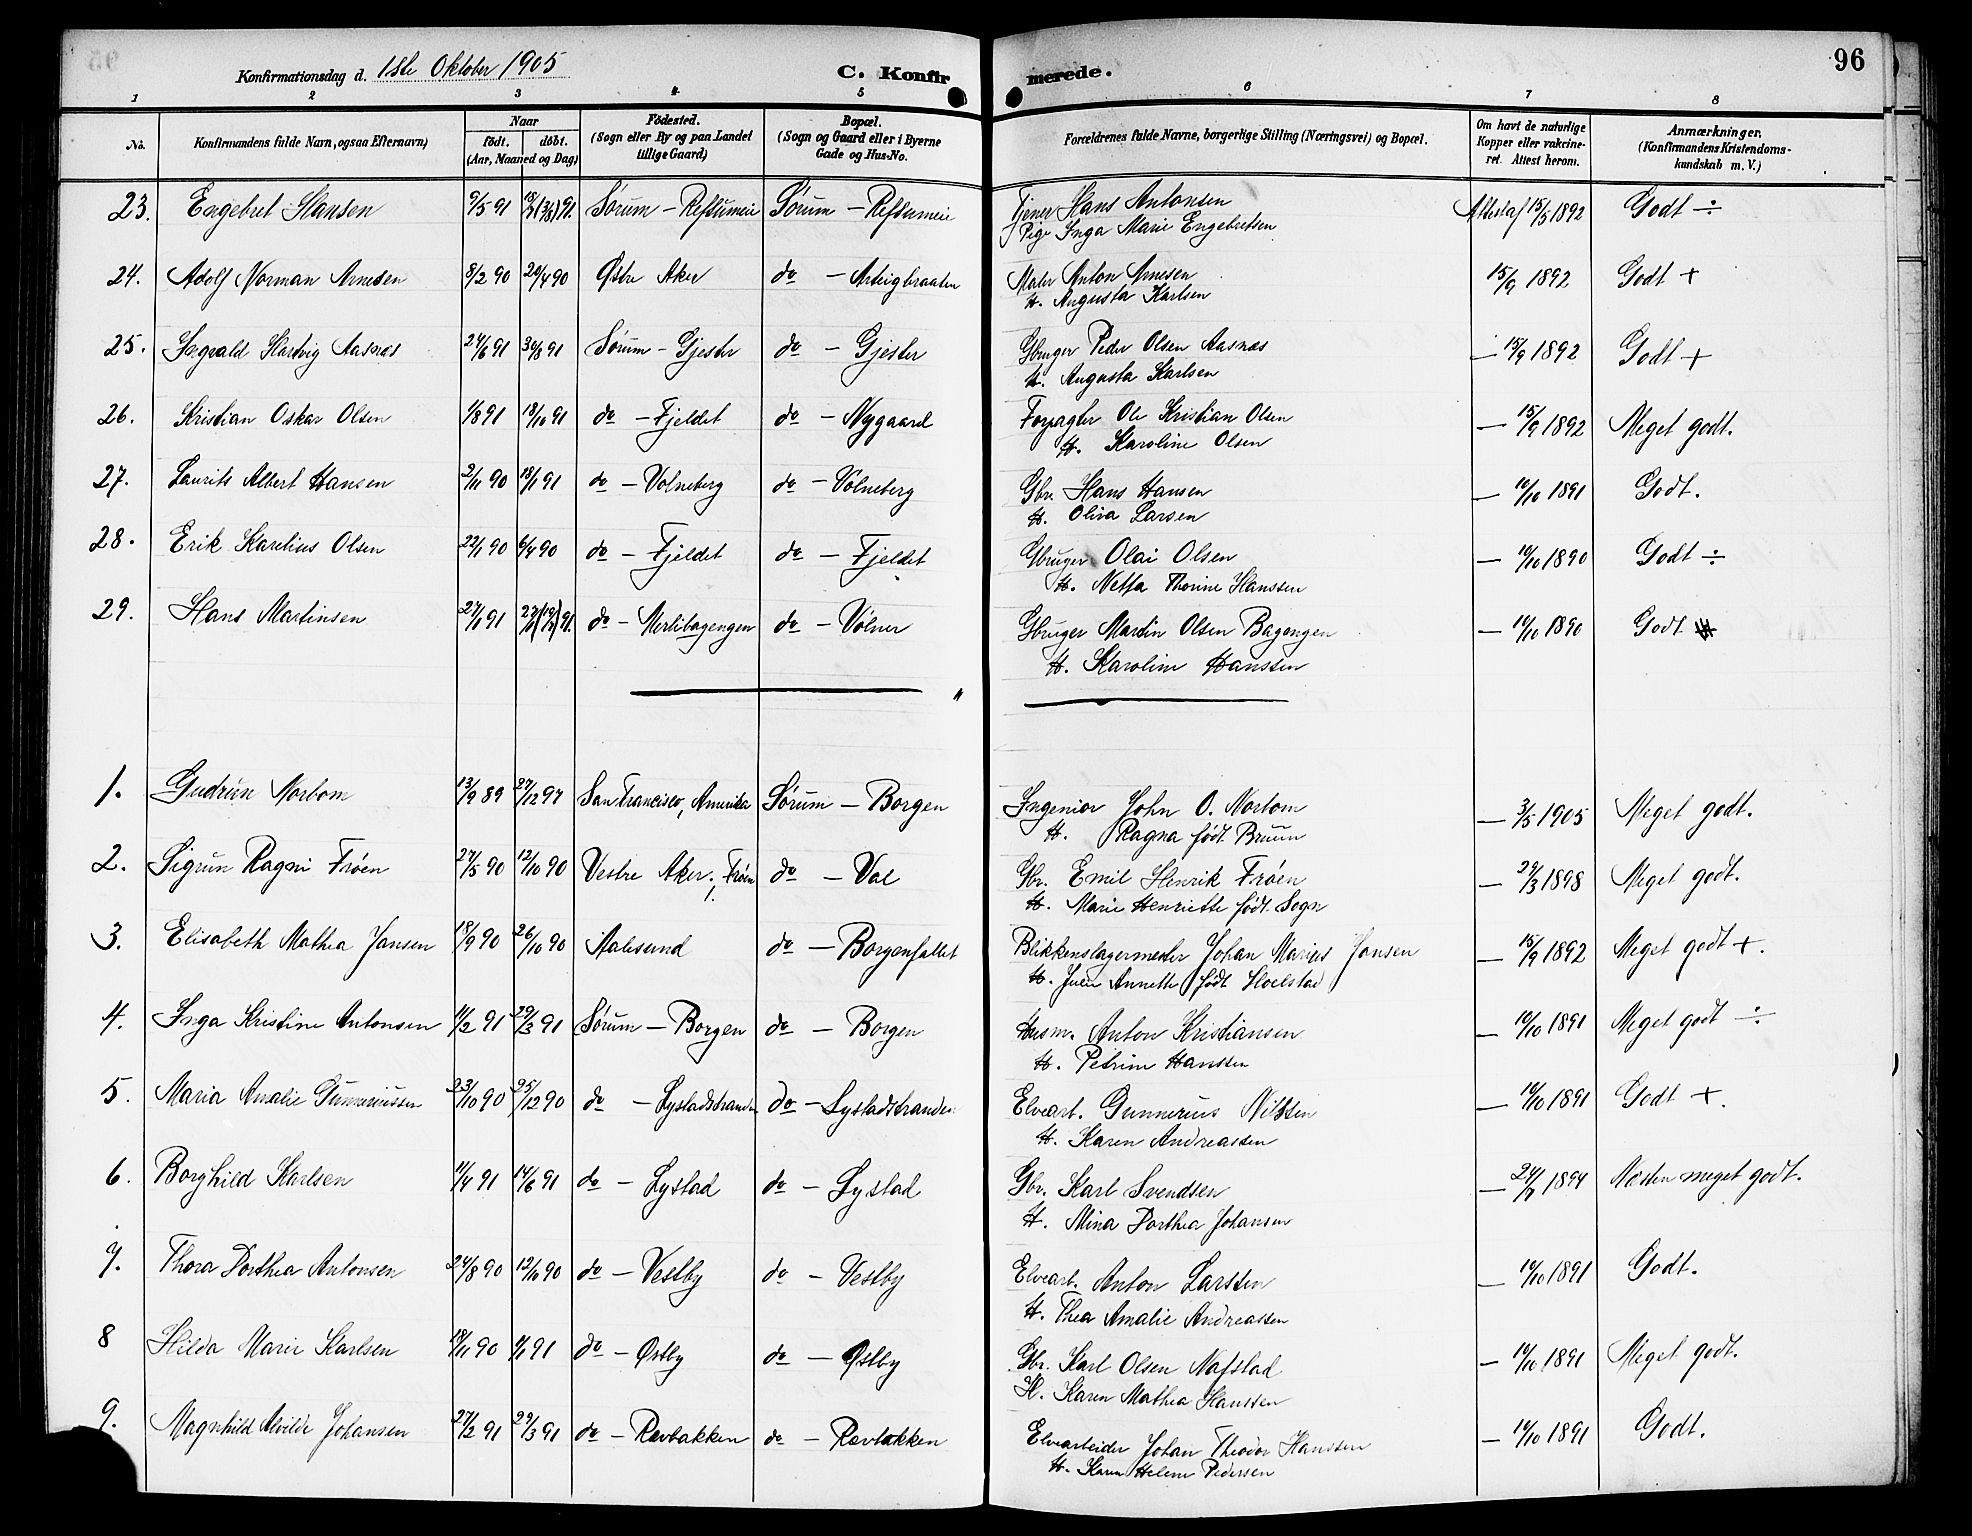 Konfirmationsdag d. 1ste Oktober 1905 C. Konfirmerede. 96
1 2 3 4 5 6 7 8
No. Konfirmandens fulde Navn, ogsaa Efternavn) Naar født. døbt. (Aar, Maaned og Dag) Fødested. (Sogn eller By og paa Landet tillige Gaard) Bopæl. (Sogn og Gaard eller i Byerne Gade og Hus-No. Forældrenes fulde Navne, borgerlige Stilling (Næringsvei) og Bopæl. Om havt de naturlige Kopper eller vakcineret. Attest herom. Anmærkninger. (Konfirmandens Kristendomskundskab m. V.)
23. Engebret Hansen 9/5 91 91. Sørum - Refsumeie Sørum - Refsumeie Tjener Hans Antonsen Attest af 15/5 1892 Godt ÷
Pige Inga Marie Engebretsen
24. Adolf Norman Arnesen 8/2 90 20/4 90 Østre Aker do - Arteigbraaten Maler Anton Arnesen 15/9 1892 Godt +
H. Augusta Karlsen
25. Ingvald Hartvig Aasnæs 24/6 91 30/8 91 Sørum - Gjester do - Gjester Gbruger Peder Olsen Aasnæs - 15/9 1892 Godt +
H. Augusta Karlsen
26. Kristian Oskar Olsen 1/8 91 18/10 91 do - Fjeldet do - Nygaard Forpagter Ole Kristian Olsen - 15/9 1892 Meget godt.
H. Karoline Olsen
27. Laurits Albert Hansen 2/11 90 18/1 91 do - Volneberg do - Volneberg Gbr. Hans Hansen - 10/10 1891 Godt.
H. Oliva Larsen
28. Erik Karelius Olsen 22/1 90 6/4 90 do - Fjeldet do - Fjeldet Gbruger Olai Olsen - 10/10 1890 Godt ÷
H. Netta Thorine Hanssen
29. Hans Martinsen 27/1 91 91. do - Merlibagengen do - Vølner Gbruger Martin Olsen Bagengen - 10/10 1890 Godt
H. Karoline Hanssen
1. Gudrun Norbom 13/9 89 27/12 97 San Francisco, Amerika Sørum - Borgen Ingeniør John O. Norbom - 3/5 1905 Meget godt.
H. Ragna født Bruun
2. Sigrun Ragni Frøen 27/5 90 12/10 90 Vestre Aker, Frøen do - Val Gbr. Emil Henrik Frøen - 29/3 1898 Meget godt.
H. Marie Henriette født Sogn
3. Elisabeth Mathea Jansen 18/9 90 26/10 90 Aalesund do - Borgenfallet Blikkenslagermester Johan Marius Jansen - 15/9 1892 Meget godt +.
H. Annette født Hoelstad
4. Inga Kristine Antonsen 11/2 91 29/3 91 Sørum - Borgen do - Borgen Husm. Anton Kristiansen - 10/10 1891 Meget godt ÷
H. Petrine Hanssen
5. Maria Amalie Gunneriussen 23/10 90 25/12 90 do - Lystadstranden do - Lystadstranden Elvearb. Gunnerius Nilssen - 10/10 1891 Godt +.
H. Karen Andreassen
6. Borghild Karlsen 11/4 91 14/6 91 do - Lystad do - Lystad Gbr. Karl Svendsen - 24/7 1894 Næsten meget godt.
H. Mina Dorthea Johansen
7. Thora Dorthea Antonsen 24/8 90 12/10 90 do - Vestby do - Vestby Elvearb. Anton Larssen - 10/10 1891 Godt.
H. Thea Amalie Andreassen
8 Hilda Marie Karlsen 18/11 90 1/1 91 do - Østby do - Østby Gbr. Karl Olsen Nafstad - 10/10 1891 Meget godt.
H. Karen Mathea Hanssen
9. Magnhild Alvilde Johansen 27/2 91 29/3 91 do - Rævbakken do - Rævbakken Elvearbeider Johan Theodor Hanssen - 10/10 1891 Godt.
H. Karen Helene Pedersen